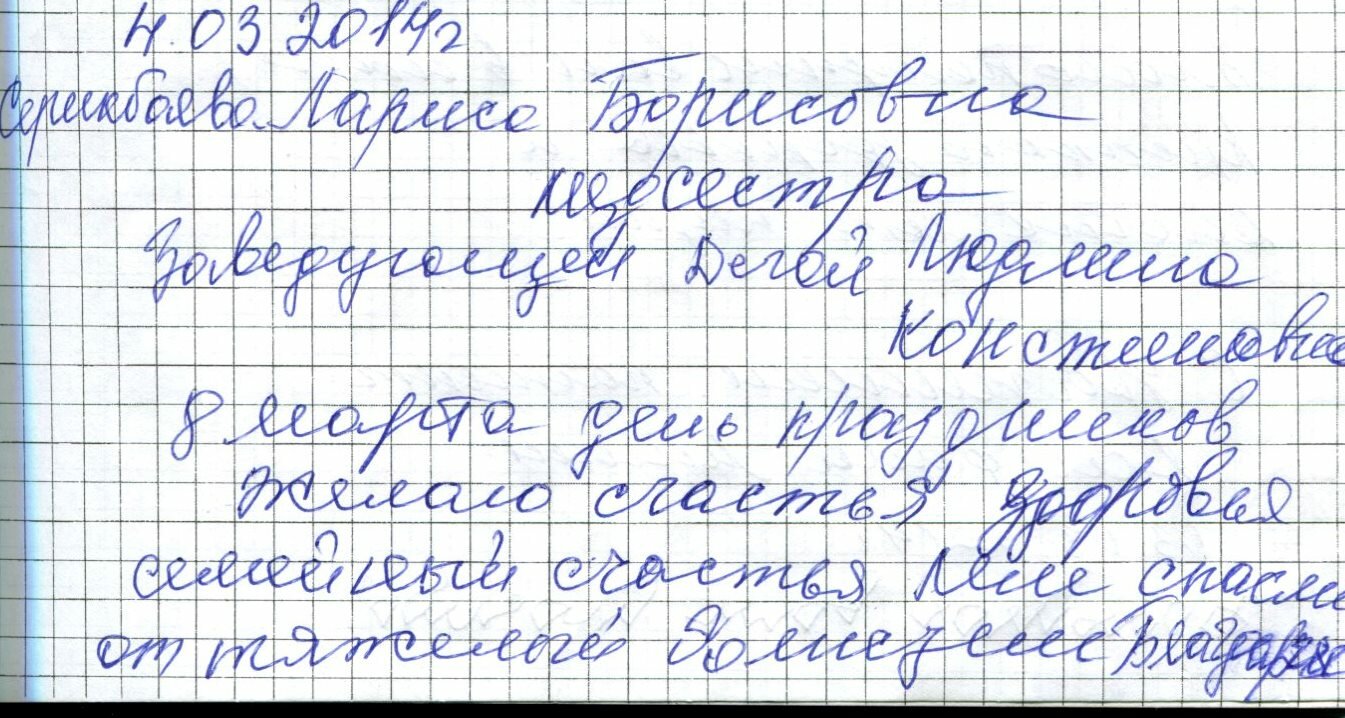 4.03 2014г
Серикбаева Лариса Борисовна
медсестра
Заведующей Дегай Людмила
Констиновна
8 марта день праздников
желаю счастья здоровья
семейный счастья мне спасли
от тяжелый болизни